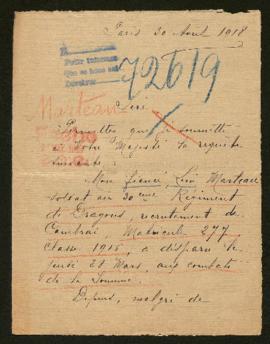 Paris 30 Avril 1918
72619
Marteau
Sire
Permettez que je soumette
à Votre Majesté la requête
suivante :
Mon fiancé, Léon Marteau
soldat au 30ème Régiment
de Dragons, recrutement de
Cambrai, Matricule 277
classe 1915, a disparu le
jeudi 28 Mars, aux combats
de la Somme.
Depuis, malgré de